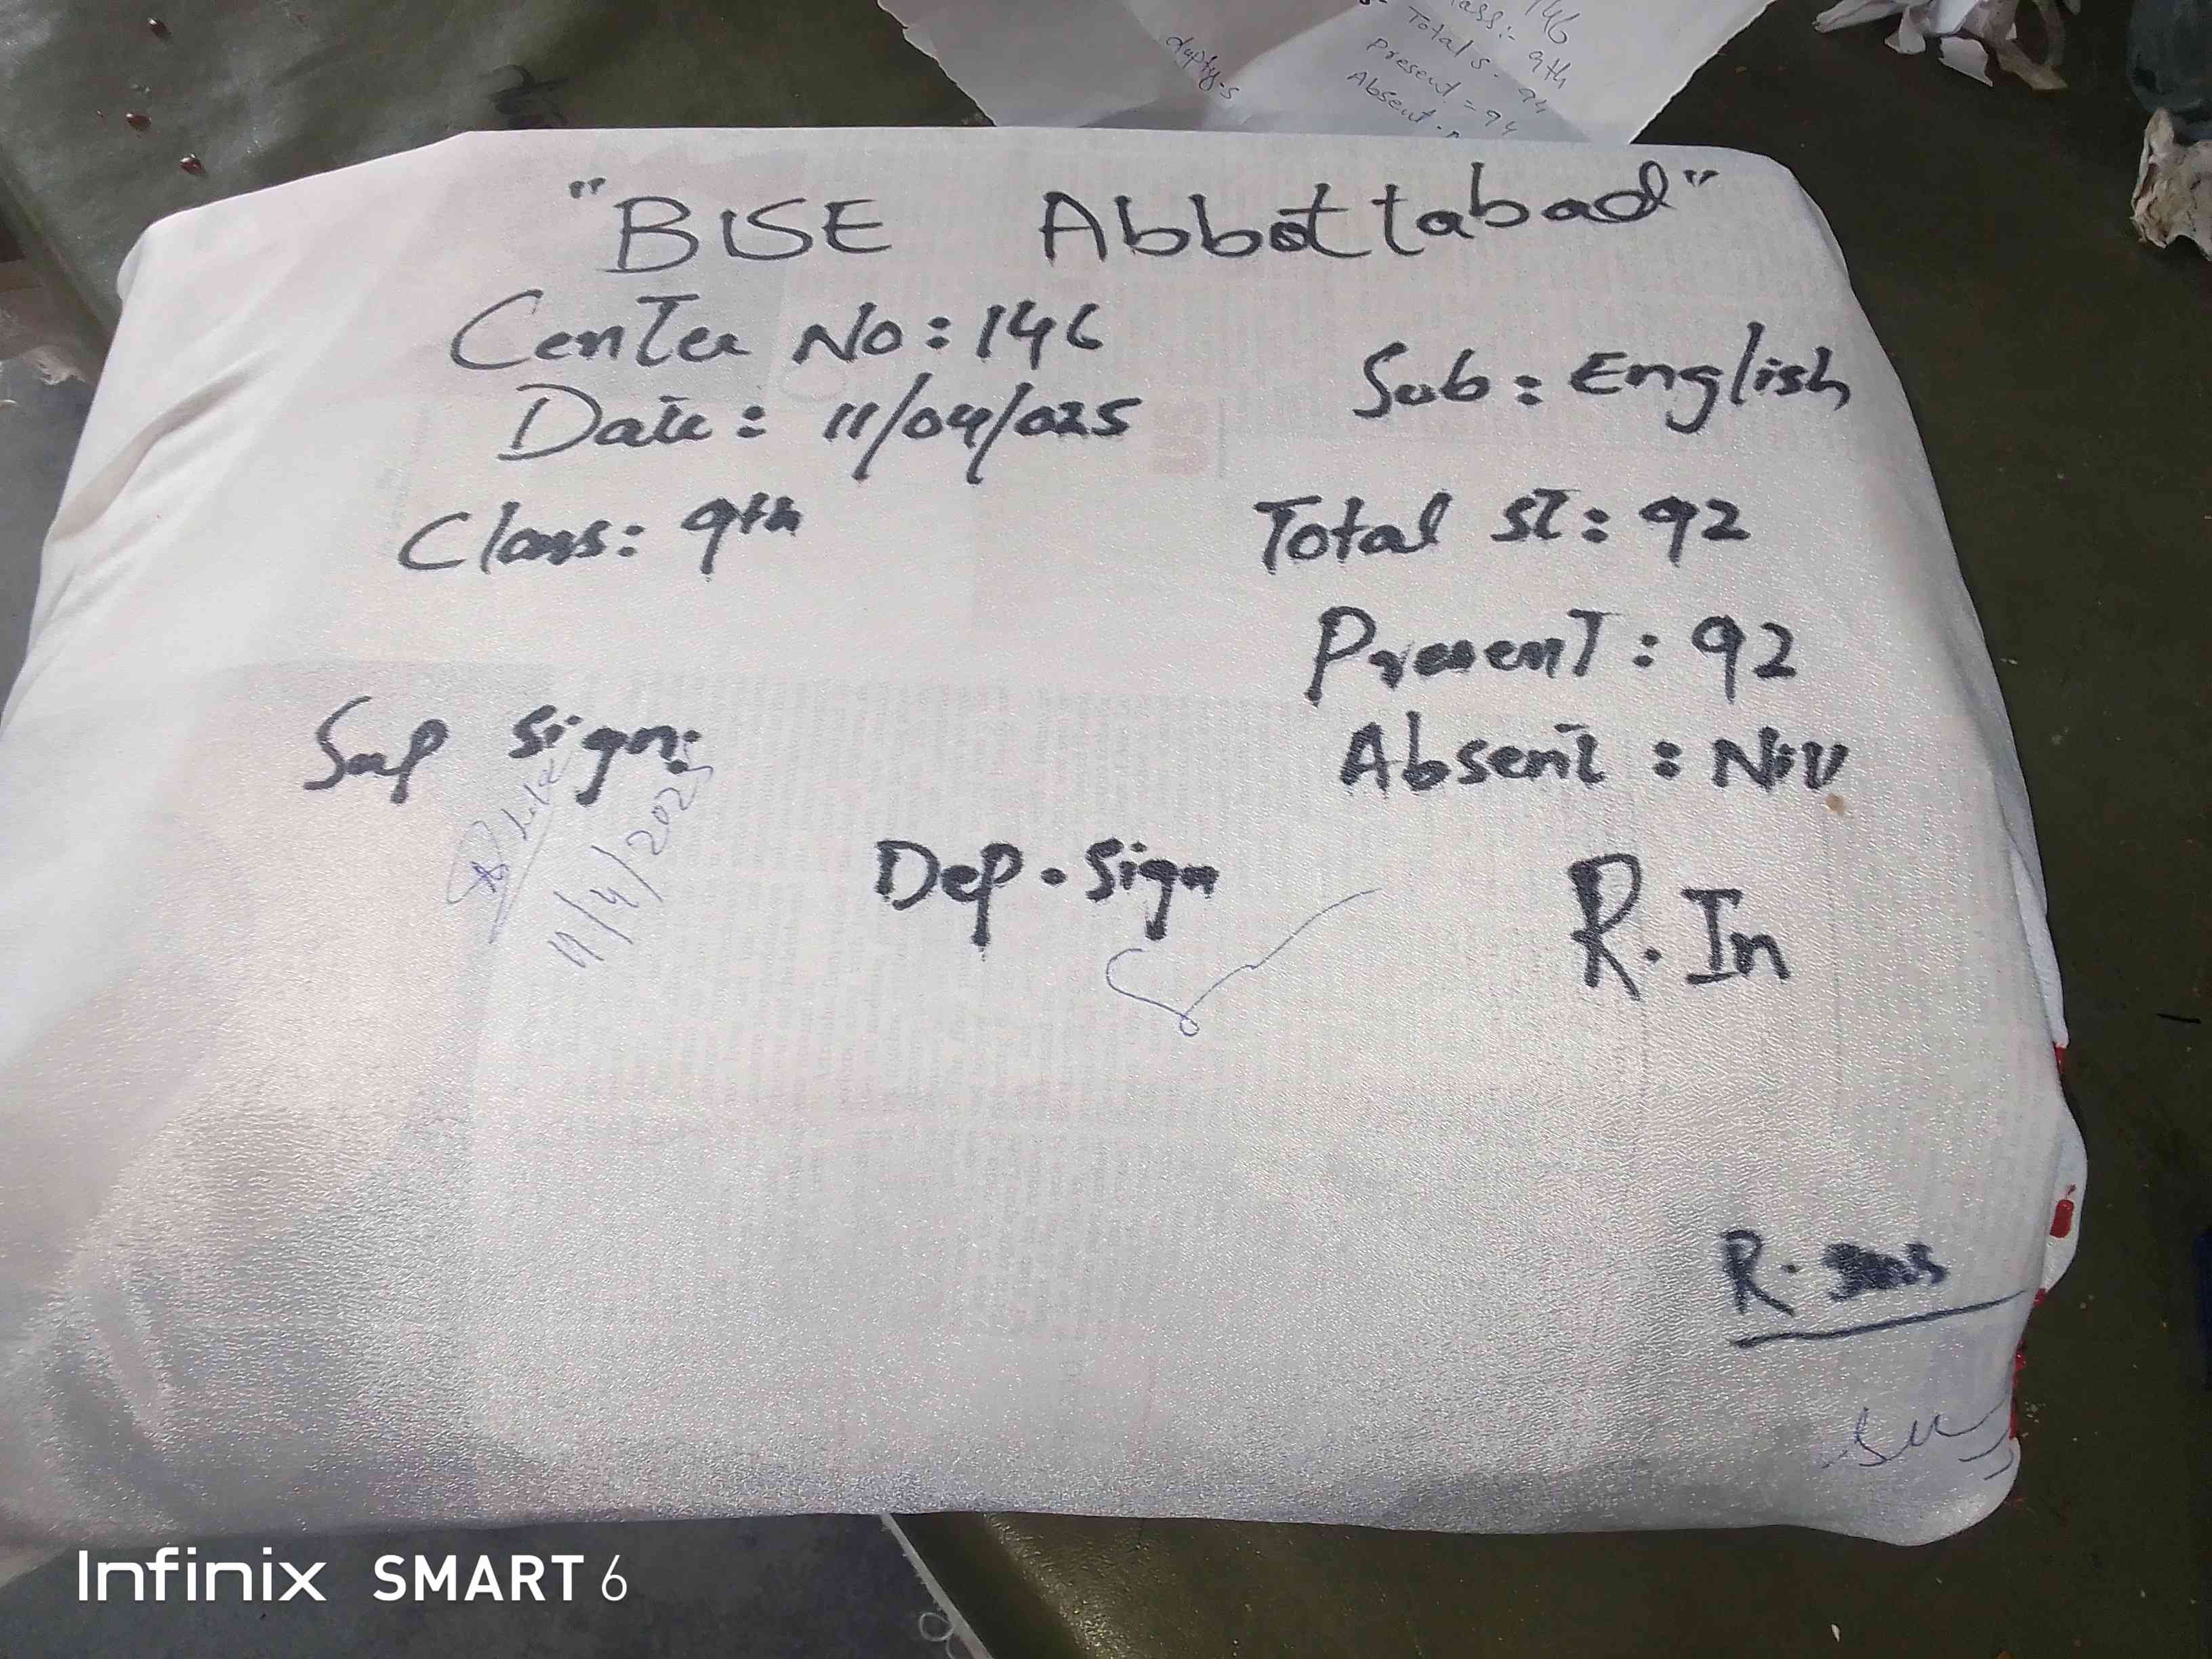 146
ass:- 9th
Total s- 94
Present = 94
Absent -
dupty-s
"BISE Abbottabad"
Center No: 146
Date: 11/04/025
Sub: English
Class: 9th
Total ST: 92
Present: 92
Absent: Nil
Sup Sign:
11/4/2025
Dep. Sign
R. In
R.
Infinix SMART 6